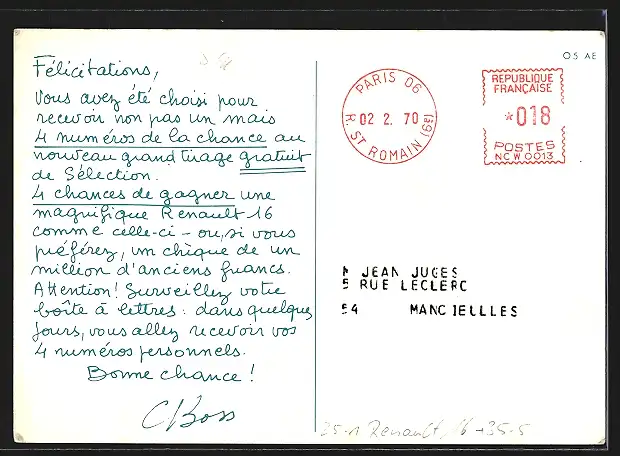 Félicitations,
Vous avez été choisi pour
recevoir non pas un mais
4 numéros de la chance au
nouveau grand tirage gratuit
de Sélection.
4 chances de gagner une
magnifique Renault 16
comme celle-ci - ou, si vous
préférez, un chèque de un
million d'anciens francs.
Attention! Surveillez votre
boîte à lettres : dans quelques
jours, vous allez recevoir vos
4 numéros personnels.
Bonne chance !
C Boss
05 AE
PARIS 06
02 2. 70
R. ST ROMAIN (6e)
REPUBLIQUE
FRANÇAISE
*018
POSTES
NC W 0013
M JEAN JUGES
5 RUE LECLERC
54 MANCIELLLES
Renault 16